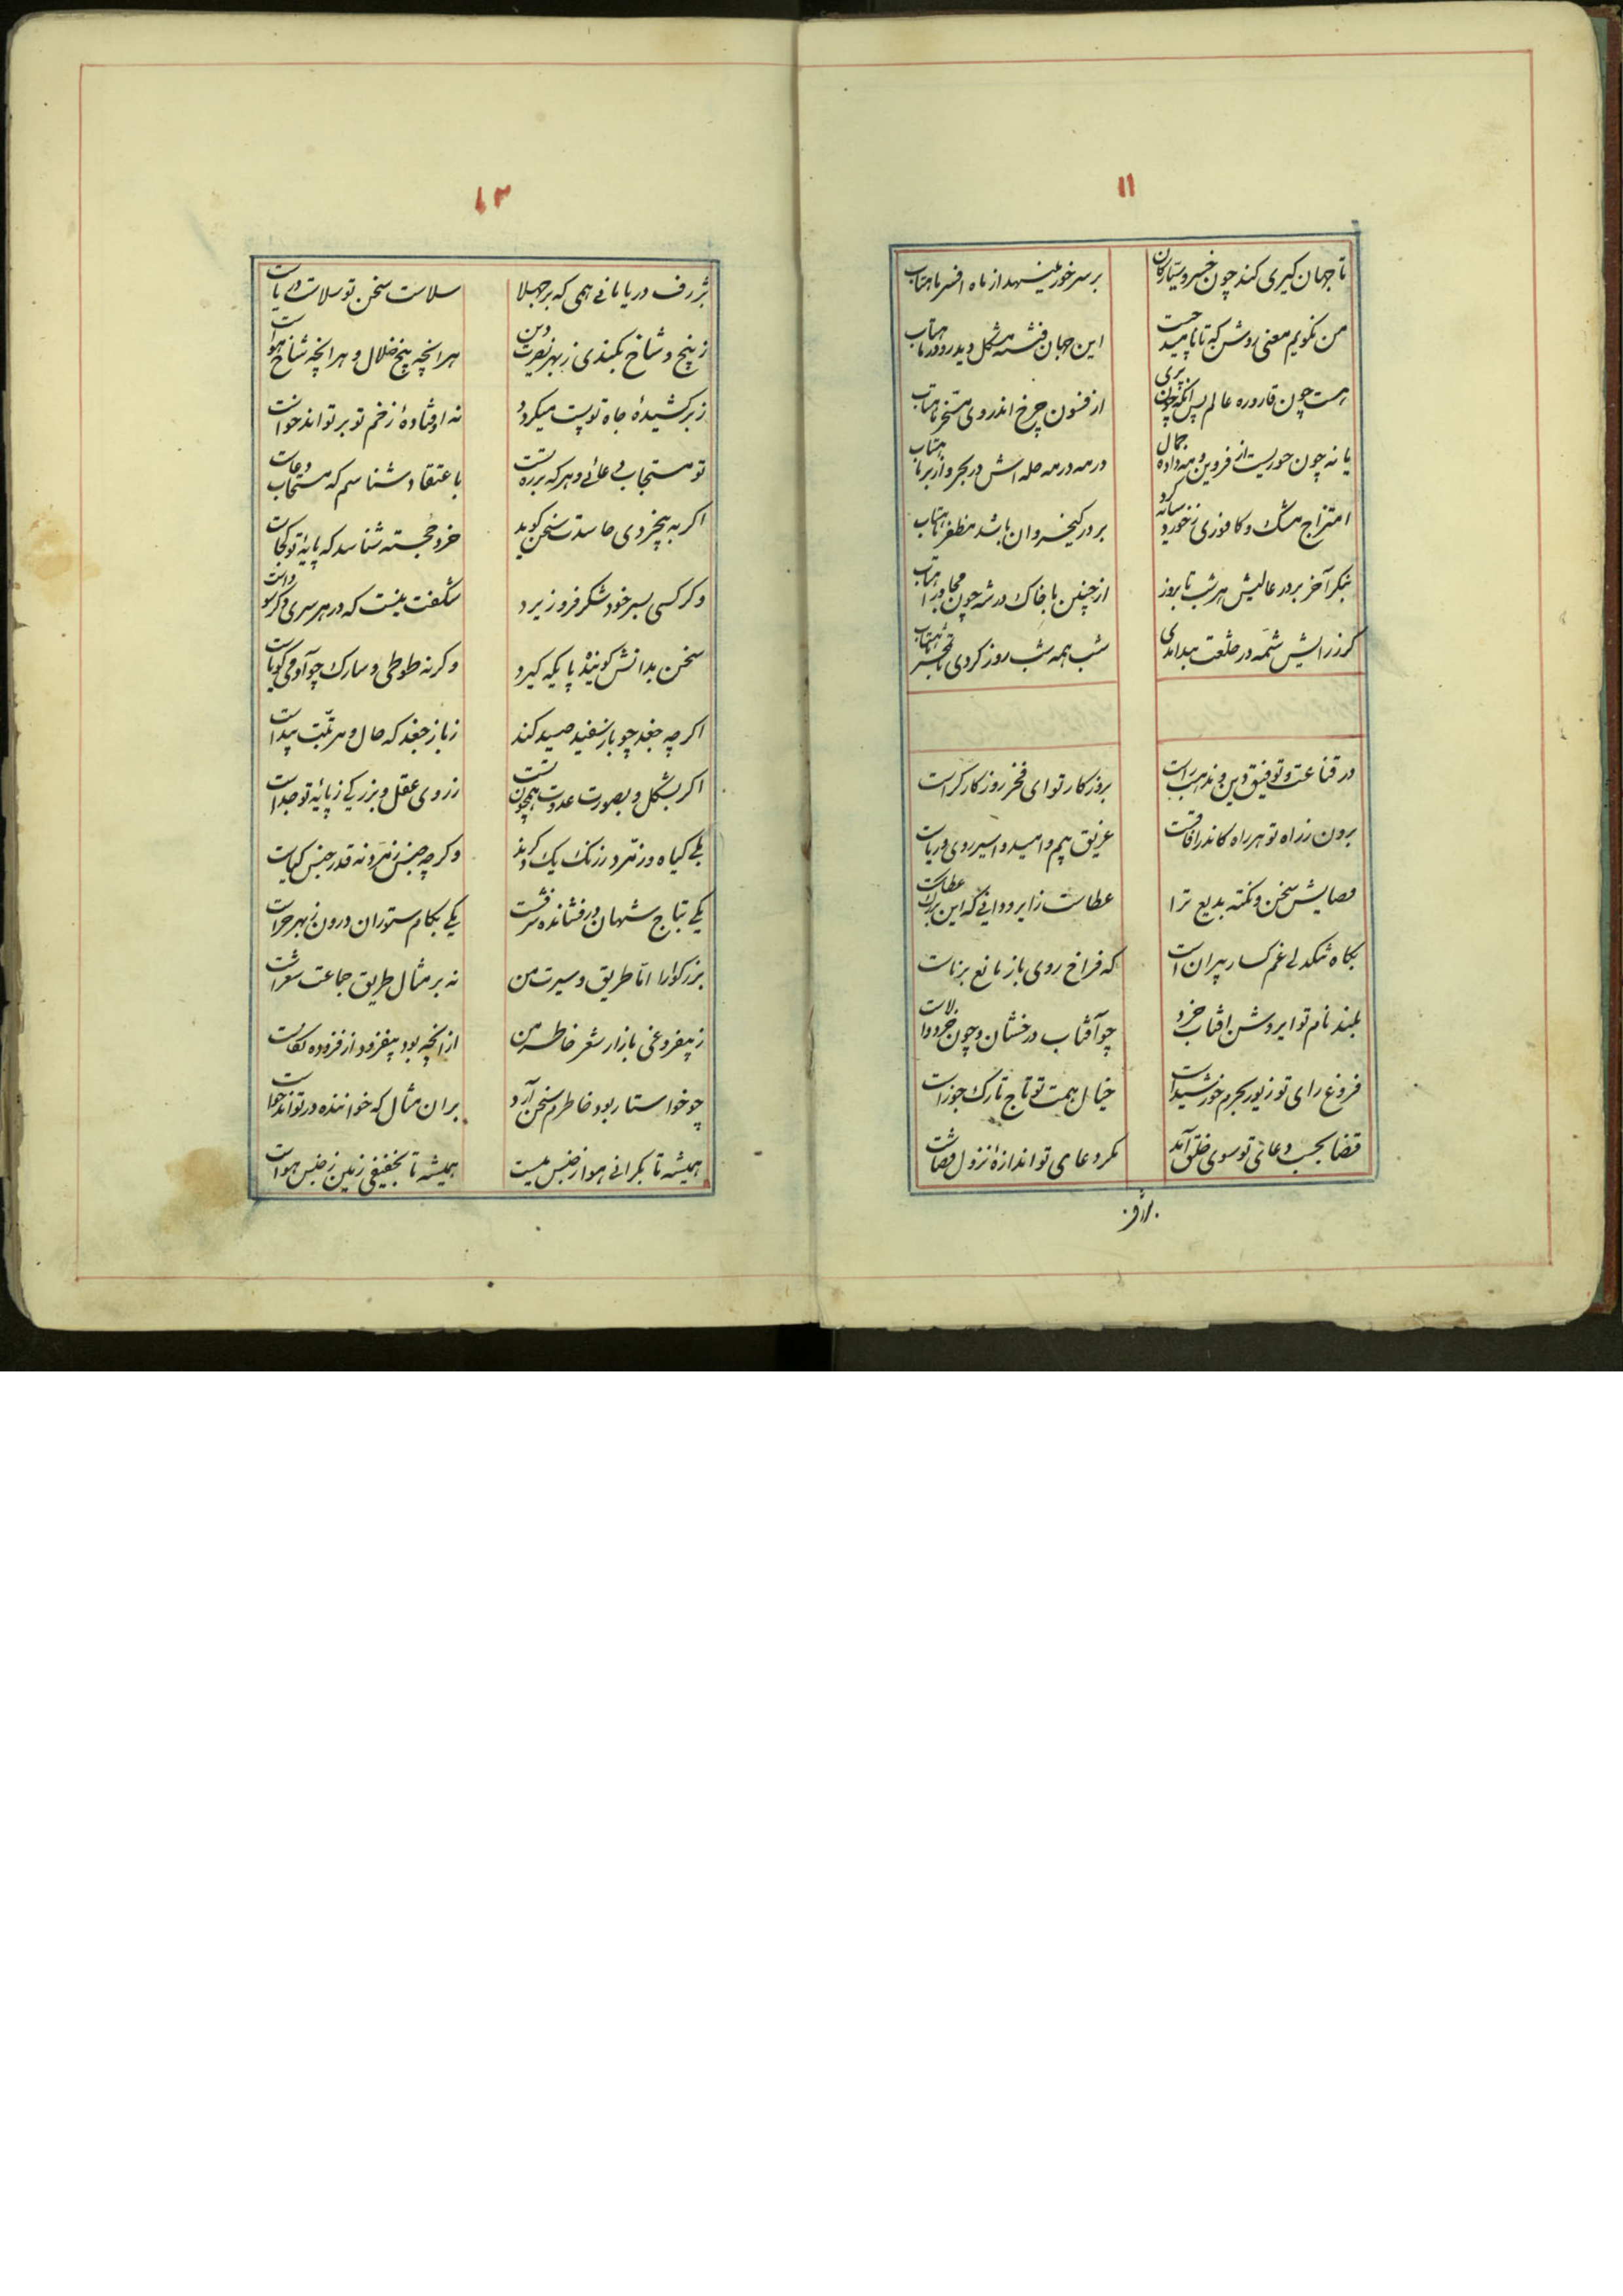 ۱۱
تا جهان گیری کند چون خسرو سیارگان
بر سر خود می‌نهد از ماه افسر ماهتاب
من نگویم معنی روشن که تا پاپید چیست
این جهان فتنه مشکل دید در ماهتاب
هست چون قاروره عالم پس انکه چون پری
از فسون چرخ اندر وی مسخر ماهتاب
یا نه چون حوریست از فردوس وهمه داده جمال
در همه در مه حله اش در بحر و در بر ماهتاب
امتزاج مشک و کافوری ز خود رسانه کرد
بر در کیخسروان باشد مظفر ماهتاب
بنگر آخر بر در عالیش هر شب تا بروز
از چنین با خاک در شه چون مجاور ماهتاب
کر ز رایش شمه در خلعت بیدا بدی
شب همه شب روز کردی تا بمحشر ماهتاب
در قناعت و توفیق و دین و مذهب راست
بروزکار تو ای فخر روزکار کراست
برون ز راه تو هر راه کاندر افاقست
غریق بیم و امید و اسیر روی و ریاست
فصایش سخن و نکته بدیع ترا
عطاست زایر و وافی که این بزرگ عطاست
بکاه تنکدلی غمکسار پیران است
که فراخ روی باز مانع برناست
بلند نام تو ایروشن افتاب خرد
چو آفتاب درخشان و چون خرد والاست
فروغ رای تو زیور بجرم خورشید است
خیال همت تو تاج تارک جوزاست
قضا بحسب دعای تو سوی خلق آمد
مکر دعای تو اندازهٔ نزول قضاست
۱۲
ژرف دریا مانی همی که بر جهلا
سلاست سخن تو سلامت دریاست
ز بیخ و شاخ بکندی ز بهر نصرت دین
هر انچه بیخ ضلال و هر انچه شاخ هواست
ز برکشیدهٔ جاه تو پست میکردد
نه اوفتادهٔ زخم تو بر تواند خواست
تو مستجاب دعائی و هر که بر ره تست
باعتقاد شناسم که مستجاب دعاست
اکر به بیخردی حاسدت سخن کوید
خرد خجسته شناسد که پایهٔ تو کجاست
وکر کسی بسر خود شکر فرو ریزد
شکفت نیست که در هر سری دکر سوداست
سخن بدانش کوینده پایکه کیرد
وکرنه طوطی و سارک چو آدمی کویاست
اکرچه جغد چو باز سفید صید کند
ز باز جغد که حال و مرتبت پیداست
اکر بشکل و بصورت عدوت همچون تست
ز روی عقل و بزرکی ز پایهٔ تو جداست
بلی کیاه و زمرد برنک یک دکرند
وکرچه جنس زمرد نه قدر جنس کیاست
یکی بتاج شهان در فشانده شرفست
یکی بکام ستوران درون ز بهر چراست
بزرکوارا اما طریق و سیرت من
نه بر مثال طریق جماعت شعراست
ز بیفروغی بازار شعر خاطر من
از انچه بود بیفزود از فزوده بکاست
چو خواستار بود خاطرم سخن آرد
بران مثال که خواننده در تواند خواست
همیشه تا بکرانی هوا ز جنس نیست
همیشه تا بخفیفی زمین ز جنس هواست